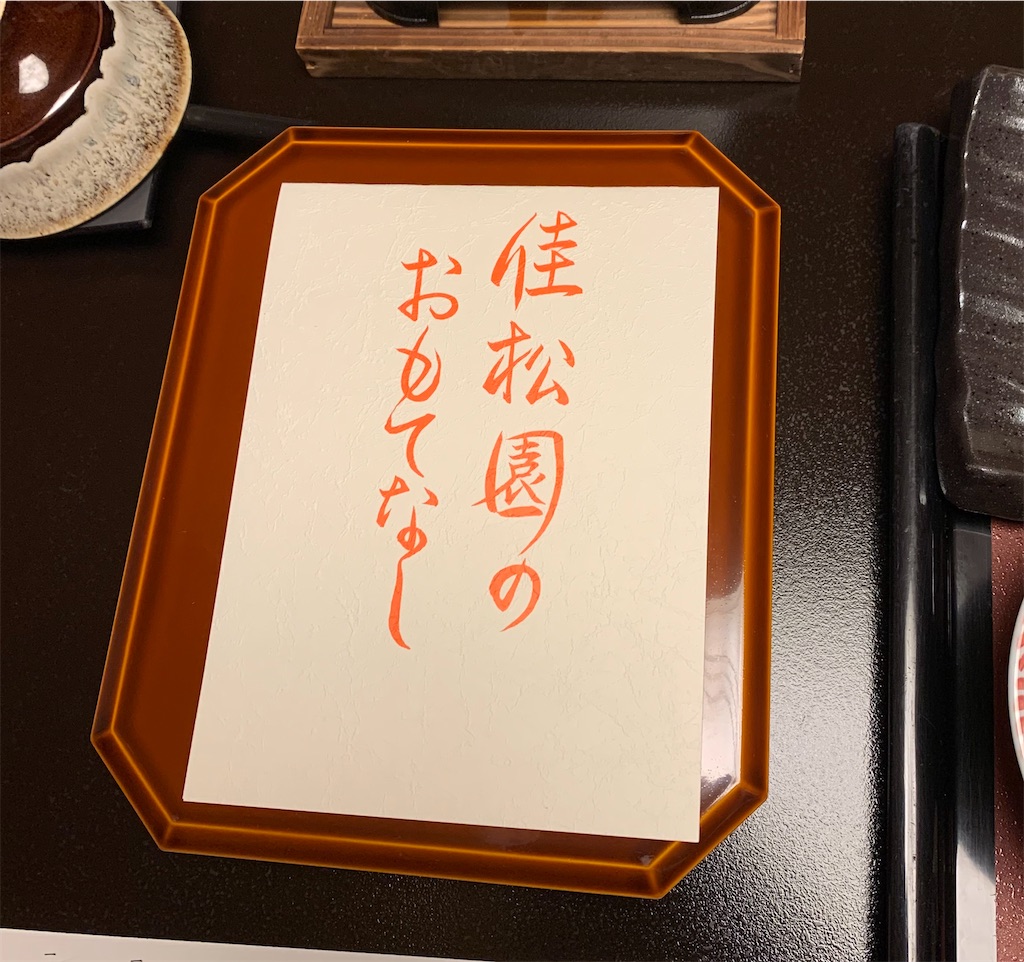 佳松園の
おもてなし